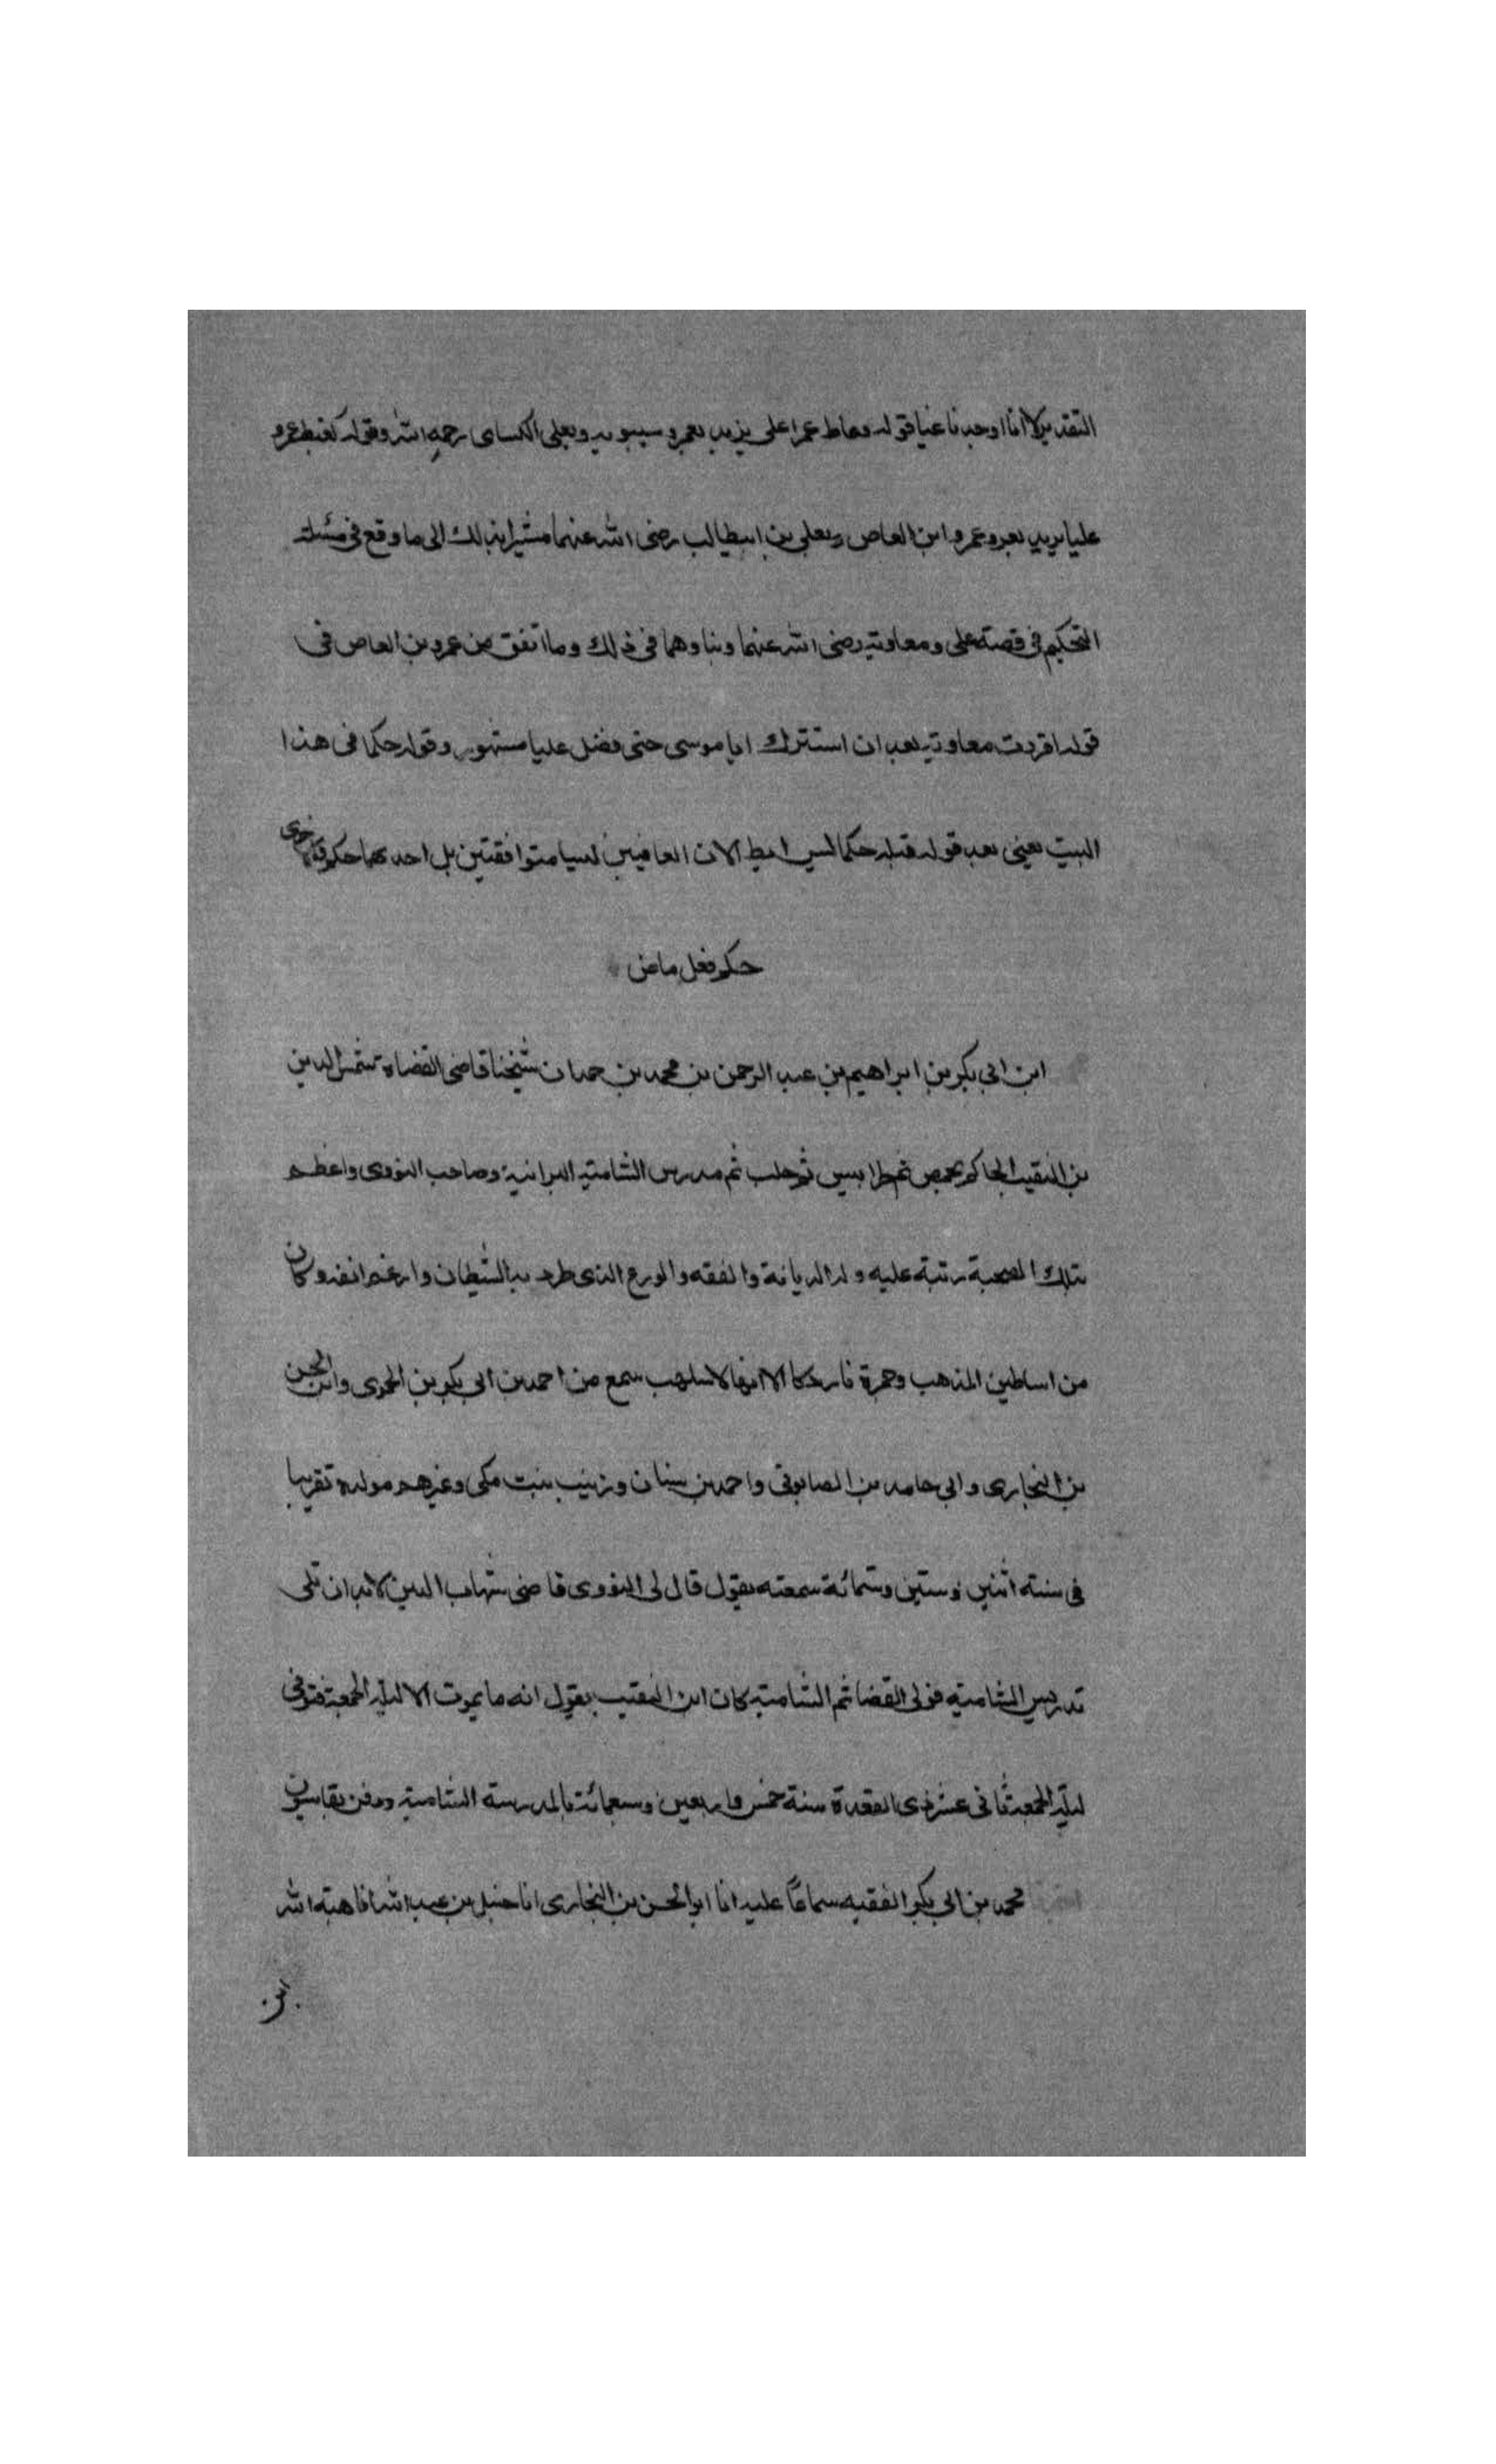 التقدير لا انا اوجدنا غيا قوله وماط عمرا على يزيد بعمرو سيبويه وبعلى الكسائى رحمه الله وقوله كغبط عمرو
عليا يريد بعمرو عمرو ابن العاص وبعلى بن ابيطالب رضى الله عنهما مشيرا بذلك الى ما وقع فى مسئلة
التحكيم فى قصة على ومعاوية رضى الله عنهما وبناوهما فى ذلك وما اتفق من عمرو بن العاص فى
قوله اقررت معاوية بعد ان استترك ابا موسى حتى فضل عليا مشهور وقوله حكما فى هذا
البيت يعنى بعد قوله قبله حكما ليس ايط الان القافيتين ليسا متوافقتين بل احدهما حكم والاخرى
حكم فعل ماض
ابن ابى بكر بن ابراهيم بن عبد الرحمن بن محمد بن حمدان شيخنا قاضى القضاة شمس الدين
بن النقيب الحاكم بحمص ثم طرابلس ثم حلب ثم مدرس الشامية البرانية وصاحب النووى واعظم
بتلك الصحبة رتبة عليه وله الديانة والفقه والورع الذى طرد به الشيطان وارغم انفه وكان
من اساطين المذهب وجمرة نار ذكا الا انها لا تلهب سمع من احمد بن ابى بكر بن الحموى وابى الحسن
بن البخارى وابى حامد بن الصابونى واحمد بن شيبان وزينب بنت مكى وغيرهم مولده تقريبا
فى سنة اثنين وستين وستمائة سمعته يقول قال لى النووى قاضى شهاب الدين لابد ان تلى
تدريس الشامية فولى القضا ثم الشامية كان ابن النقيب يقول انه ما يموت الا ليلة الجمعة فتوفى
ليلة الجمعة ثانى عشر ذى القعدة سنة خمس واربعين وسبعمائة بالمدرسة الشامية ودفن بقاسيون
محمد بن ابى بكر الفقيه سماعا عليه انا ابو الحسن بن البخارى انا حنبل بن عبد الله انا هبة الله
بن